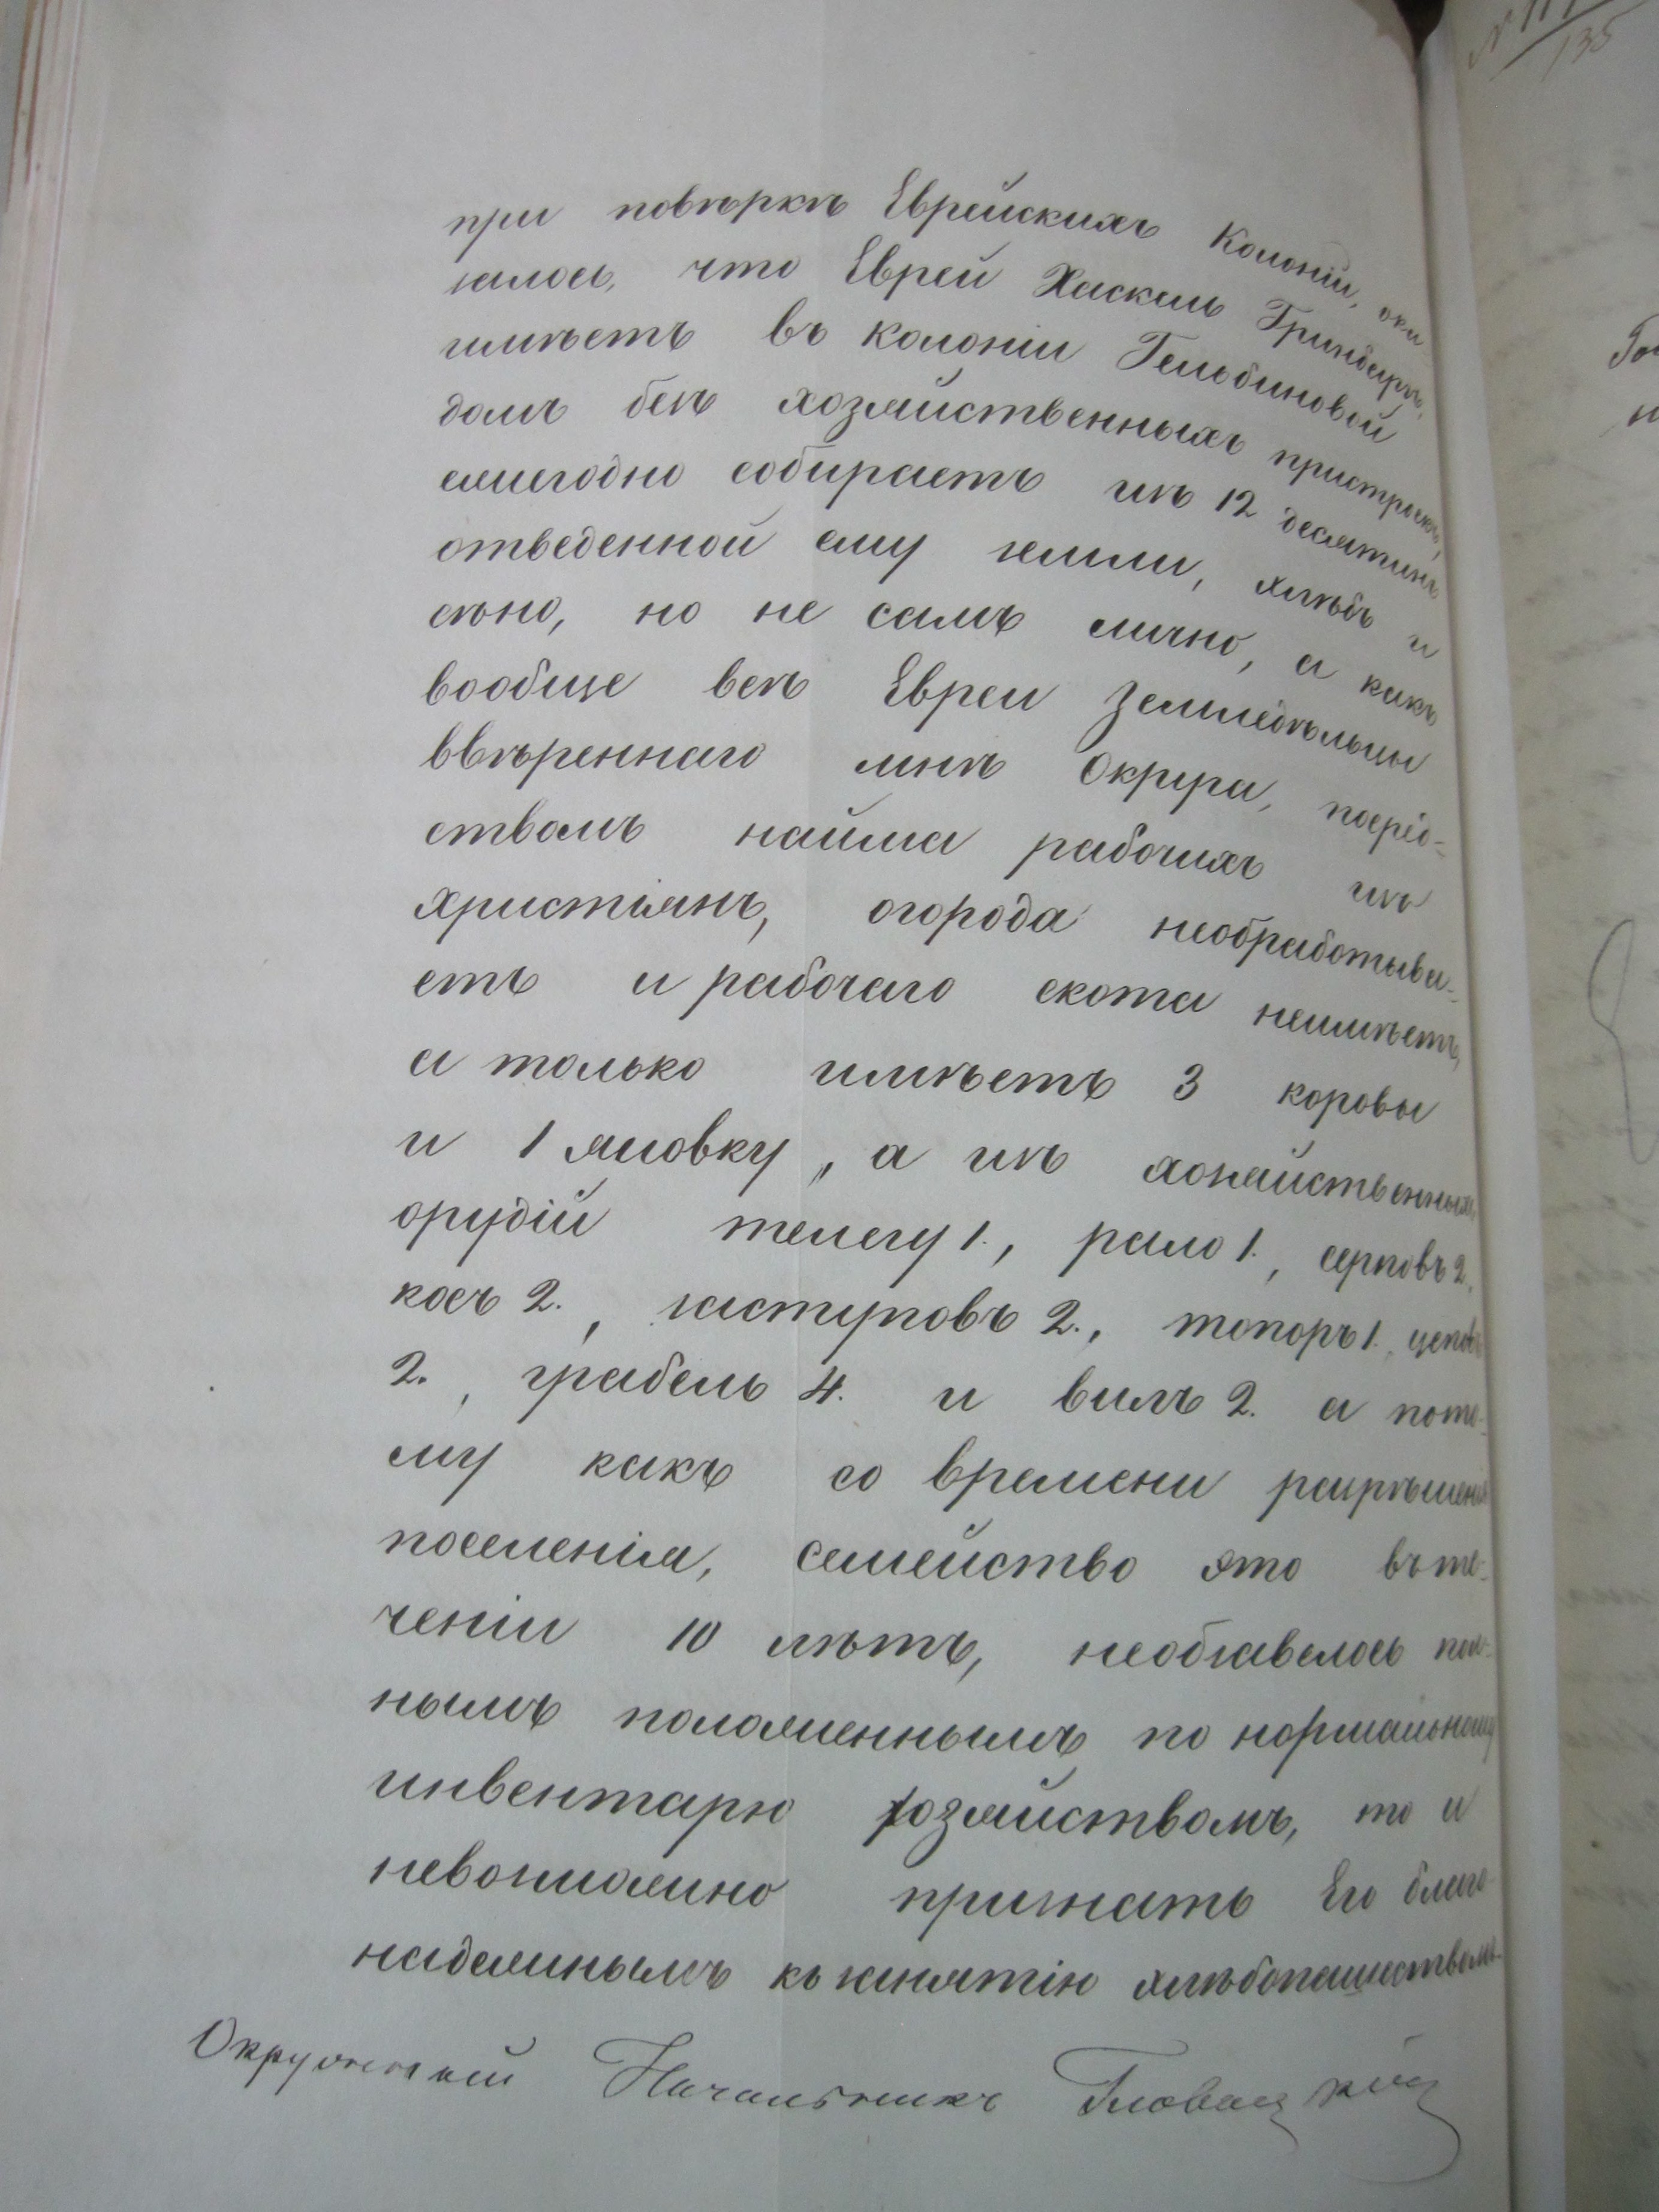 №
135
при повѣркѣ Еврейскихъ Колоній, ока
залось, что Еврей Хаскель Гринбергъ,
имѣетъ въ колоніи Гельбиновой
домъ безъ хозяйственныхъ пристроекъ,
ежегодно собираетъ изъ 12 десятинъ
отведенной ему земли, хлѣбъ и
сѣно, но не самъ лично, а какъ
вообще всѣ Евреи Земледѣльцы
ввѣреннаго мнѣ Округа, посред-
ствомъ найма рабочихъ изъ
христіянъ, огорода необработыва-
етъ и рабочаго скота неимѣетъ,
а только имѣетъ 3 коровы
и 1 яловку, а изъ хозяйственныхъ
орудій телегу 1., рало 1., серповъ 2.
косъ 2., заступовъ 2., топоръ 1., цеповъ
2., грабель 4. и вилъ 2. а пото-
му какъ со времени разрѣшенія
поселенія, семейство это въ те-
ченіи 10 лѣтъ, необзавелось пол-
нымъ положеннымъ по нормальному
инвентарю хозяйствомъ, то и
невозможно признать Его благо-
надежнымъ къ занятію хлѣбопашествомъ.
Окружный Начальникъ Гловацкій